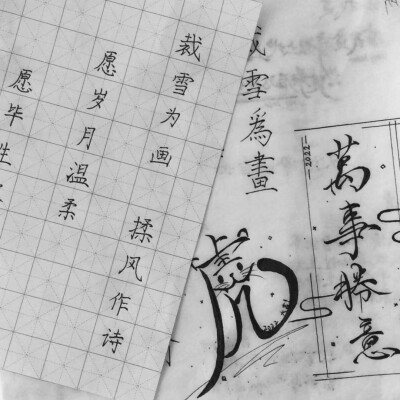 裁雪为画 揉风作诗
愿岁月温柔
愿毕生
裁雪為畫
虎
萬事勝意
2022